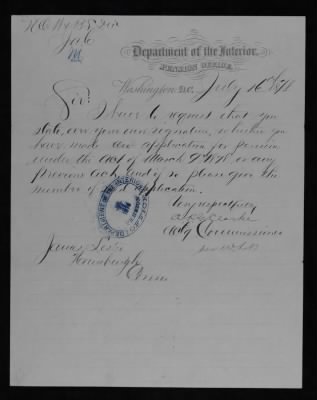 Department of the Interior,
PENSION OFFICE,
Washington D.C., July 16 1878
Sir:
I have to request that you
state, over your own signature, whether you
have made an application for pension
under the Act of March 9 1878, or any
previous Act, and if so please give the
number of said application.
Very respectfully
Actg Commissioner
James
Conn